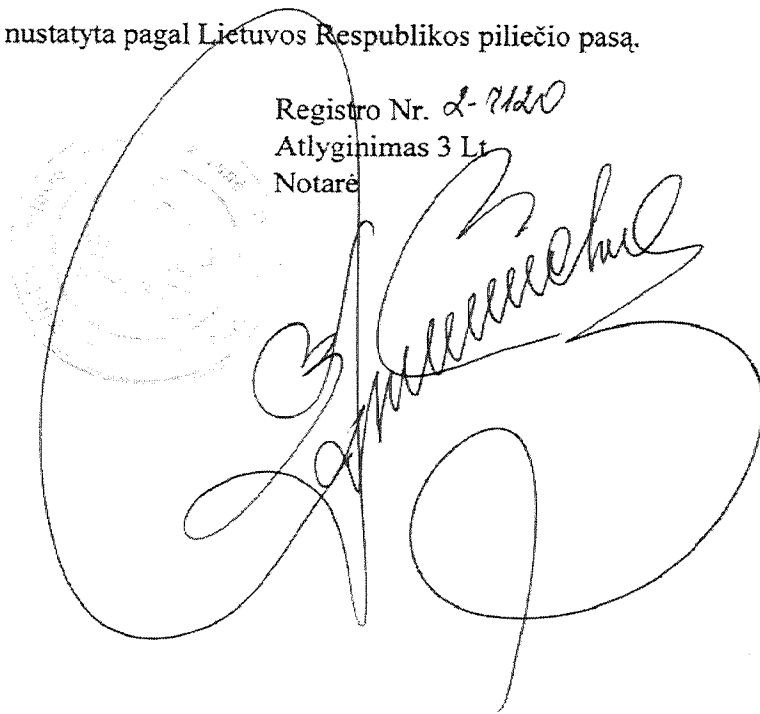 nustatyta pagal Lietuvos Respublikos piliečio pasą.
Registro Nr. 2-7120
Atlyginimas 3 Lt
Notarė